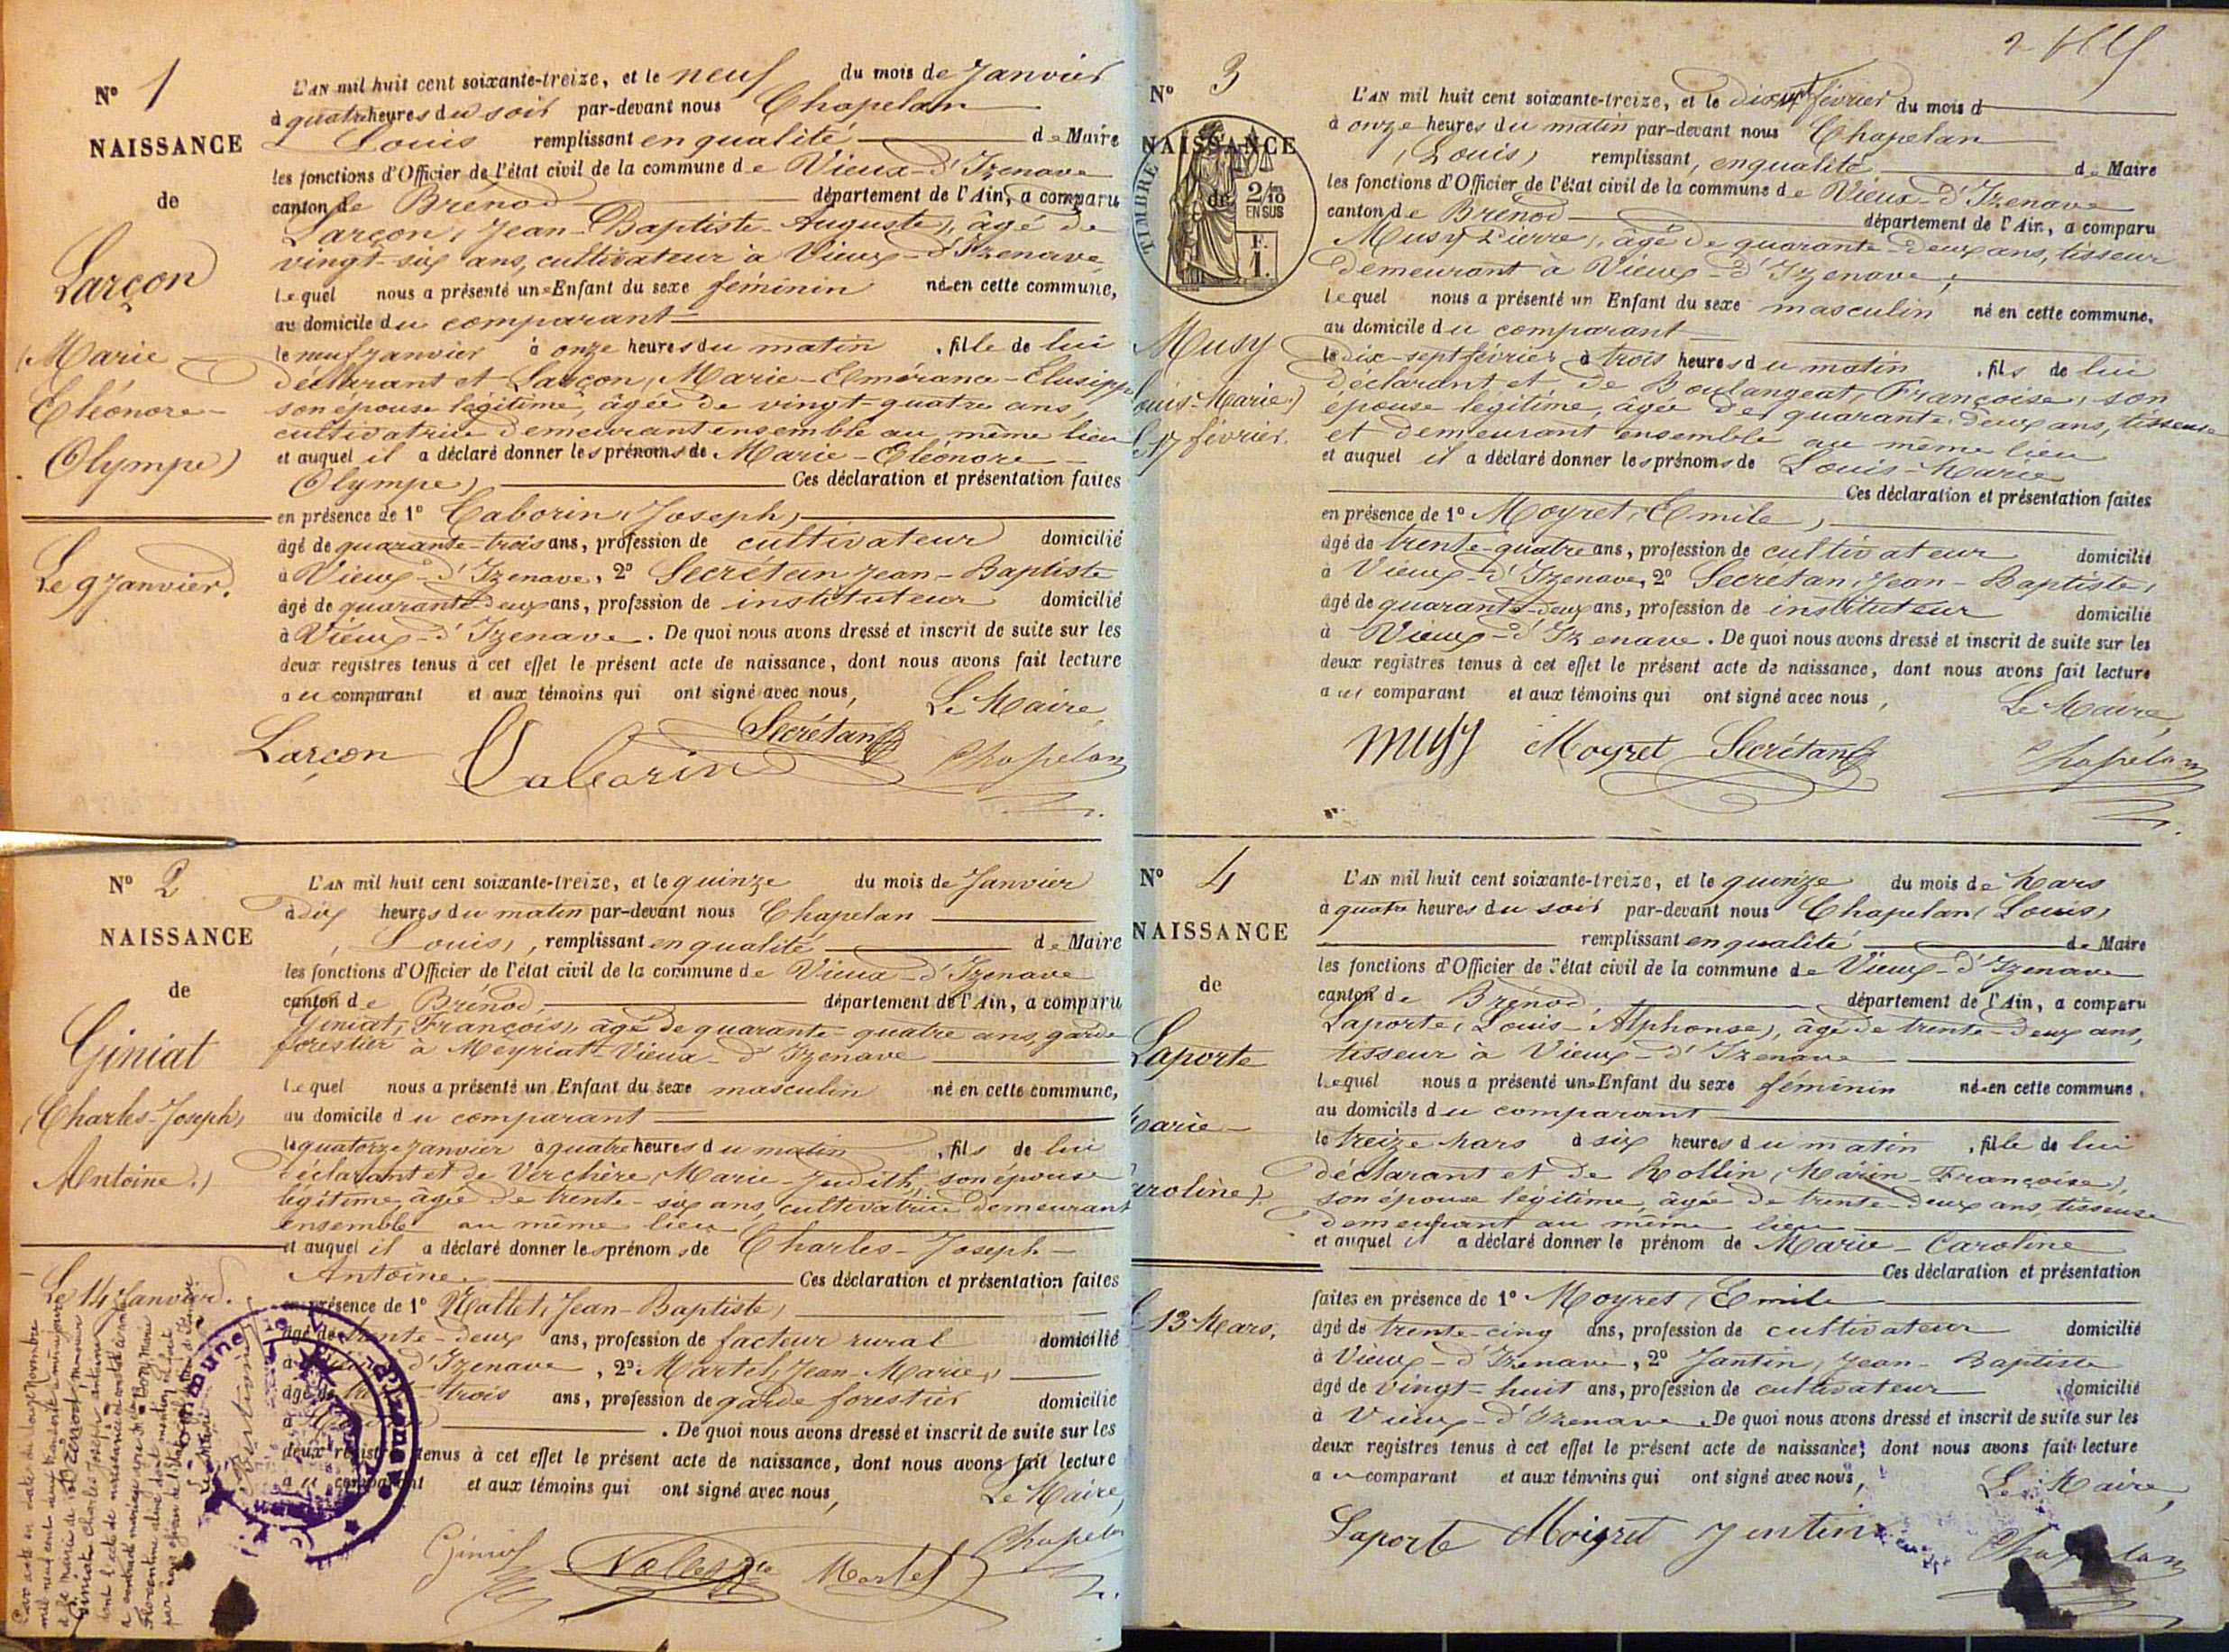 N° 1
NAISSANCE
de
Larçon
(Marie
Eléonore-
Olympe)
Le 9 Janvier.
L'AN mil huit cent soixante-treize, et le neuf du mois de Janvier
à quatre heures du soir par-devant nous Chapelan
Louis remplissant en qualité de Maire
les fonctions d'Officier de l'état civil de la commune de Vieux-d'Izenave
canton de Brénod département de l'Ain, a comparu
Larçon, Jean-Baptiste-Auguste, âgé de
vingt-six ans, cultivateur à Vieux-d'Izenave,
lequel nous a présenté une Enfant du sexe féminin née en cette commune,
au domicile du comparant
le neuf janvier à onze heures du matin, fille de lui
déclarant et Larçon, Marie-Emérance-Elusippe
son épouse légitime, âgée de vingt-quatre ans,
cultivatrice demeurant ensemble au même lieu
et auquel il a déclaré donner les prénoms de Marie-Eléonore-
Olympe) Ces déclaration et présentation faites
en présence de 1° Caborin, Joseph,
âgé de quarante-trois ans, profession de cultivateur domicilié
à Vieux-d'Izenave, 2° Secrétan Jean-Baptiste
âgé de quarante-deux ans, profession de instituteur domicilié
à Vieux-d'Izenave. De quoi nous avons dressé et inscrit de suite sur les
deux registres tenus à cet effet le présent acte de naissance, dont nous avons fait lecture
au comparant et aux témoins qui ont signé avec nous,
Le Maire,
Larçon Secrétan Chapelan
N° 2
NAISSANCE
de
Giniat
(Charles-Joseph,
Antoine.)
Le 14 Janvier.
L'AN mil huit cent soixante-treize, et le quinze du mois de Janvier
à dix heures du matin par-devant nous Chapelan
(Louis), remplissant en qualité de Maire
les fonctions d'Officier de l'état civil de la commune de Vieux-d'Izenave
canton de Brénod, département de l'Ain, a comparu
Giniat, François, âgé de quarante-quatre ans, garde
forestier à Meyriat-Vieux-d'Izenave
lequel nous a présenté un Enfant du sexe masculin né en cette commune,
au domicile du comparant
le quatorze janvier à quatre heures du matin, fils de lui
déclarant et de Verchère, Marie-Judith, son épouse
légitime, âgée de trente-six ans, cultivatrice demeurant
ensemble au même lieu
et auquel il a déclaré donner les prénoms de Charles-Joseph-
Antoine Ces déclaration et présentation faites
en présence de 1° Nallet, Jean-Baptiste,
âgé de trente-deux ans, profession de facteur rural domicilié
à d'Izenave, 2° Martel, Jean-Marie,
âgé de trente-trois ans, profession de garde forestier domicilié
à
. De quoi nous avons dressé et inscrit de suite sur les
deux registres tenus à cet effet le présent acte de naissance, dont nous avons fait lecture
au comparant et aux témoins qui ont signé avec nous,
Le Maire,
Giniat Martel Chapelan
2
N° 3
NAISSANCE
TIMBRE
de 2/10
EN SUS
F.
1.
Musy
Louis-Marie)
17 février.
L'AN mil huit cent soixante-treize, et le dix-sept février du mois d
à onze heures du matin par-devant nous Chapelan
(Louis) remplissant, en qualité de Maire
les fonctions d'Officier de l'état civil de la commune de Vieux-d'Izenave
canton de Brénod département de l'Ain, a comparu
Musy Pierre, âgé de quarante-deux ans, tisseur
demeurant à Vieux-d'Izenave,
lequel nous a présenté un Enfant du sexe masculin né en cette commune,
au domicile du comparant
le dix-sept février à trois heures du matin, fils de lui
déclarant et de Boulangeat, Françoise, son
épouse légitime, âgée de quarante-deux ans, tisseuse
et demeurant ensemble au même lieu
et auquel il a déclaré donner les prénoms de Louis-Marie
Ces déclaration et présentation faites
en présence de 1° Moyret, Emile,
âgé de trente-quatre ans, profession de cultivateur domicilié
à Vieux-d'Izenave, 2° Secrétan, Jean-Baptiste,
âgé de quarante-deux ans, profession de instituteur domicilié
à Vieux-d'Izenave. De quoi nous avons dressé et inscrit de suite sur les
deux registres tenus à cet effet le présent acte de naissance, dont nous avons fait lecture
au comparant et aux témoins qui ont signé avec nous,
Le Maire,
Musy Moyret Secrétan Chapelan
N° 4
NAISSANCE
de
Laporte
Marie-
Caroline)
13 Mars,
L'AN mil huit cent soixante-treize, et le quinze du mois de Mars
à quatre heures du soir par-devant nous Chapelan (Louis)
remplissant en qualité de Maire
les fonctions d'Officier de l'état civil de la commune de Vieux-d'Izenave
canton de Brénod, département de l'Ain, a comparu
Laporte, (Louis-Alphonse), âgé de trente-deux ans,
tisseur à Vieux-d'Izenave
lequel nous a présenté une Enfant du sexe féminin née en cette commune,
au domicile du comparant
le treize Mars à six heures du matin, fille de lui
déclarant et de Rollin, (Marie-Françoise),
son épouse légitime, âgée de trente-deux ans, tisseuse
demeurant au même lieu
et auquel il a déclaré donner le prénom de Marie-Caroline
Ces déclaration et présentation
faites en présence de 1° Moyret, Emile
âgé de trente-cinq ans, profession de cultivateur domicilié
à Vieux-d'Izenave, 2° Jantin, Jean-Baptiste
âgé de vingt-huit ans, profession de cultivateur domicilié
à Vieux-d'Izenave. De quoi nous avons dressé et inscrit de suite sur les
deux registres tenus à cet effet le présent acte de naissance, dont nous avons fait lecture
au comparant et aux témoins qui ont signé avec nous,
Le Maire,
Laporte Moigret Jentin Chapelan